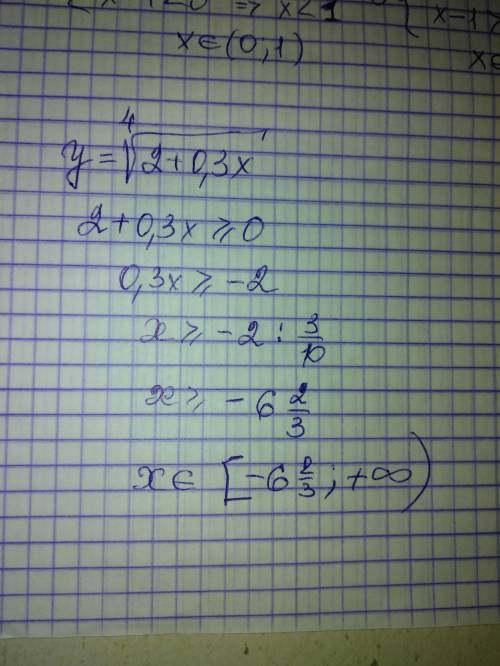 => x<1
x∈(0;1)
{ x-1
x∈
y=⁴√2+0,3x
2+0,3x⩾0
0,3x⩾-2
x⩾-2:3/10
x⩾-6 2/3
x∈[-6 2/3;+∞)